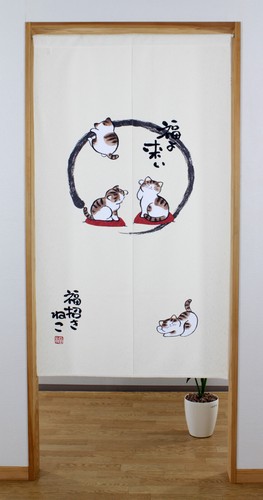 福よ
来い
福招き
ねこ